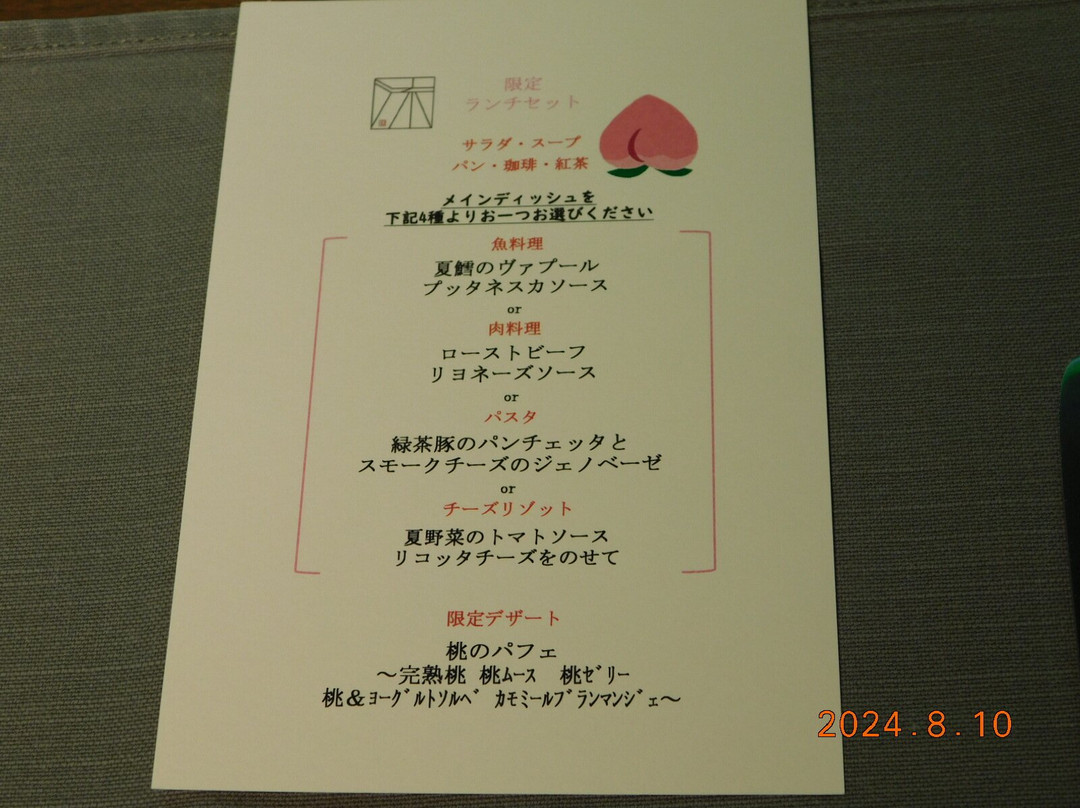 限定
ランチセット
サラダ・スープ
パン・珈琲・紅茶
メインディッシュを
下記4種よりお一つお選びください
魚料理
夏鱈のヴァプール
プッタネスカソース
or
肉料理
ローストビーフ
リヨネーズソース
or
パスタ
緑茶豚のパンチェッタと
スモークチーズのジェノベーゼ
or
チーズリゾット
夏野菜のトマトソース
リコッタチーズをのせて
限定デザート
桃のパフェ
～完熟桃 桃ﾑｰｽ 桃ｾﾞﾘｰ
桃＆ﾖｰｸﾞﾙﾄｿﾙﾍﾞ ｶﾓﾐｰﾙﾌﾞﾗﾝﾏﾝｼﾞｪ～
2024.8.10